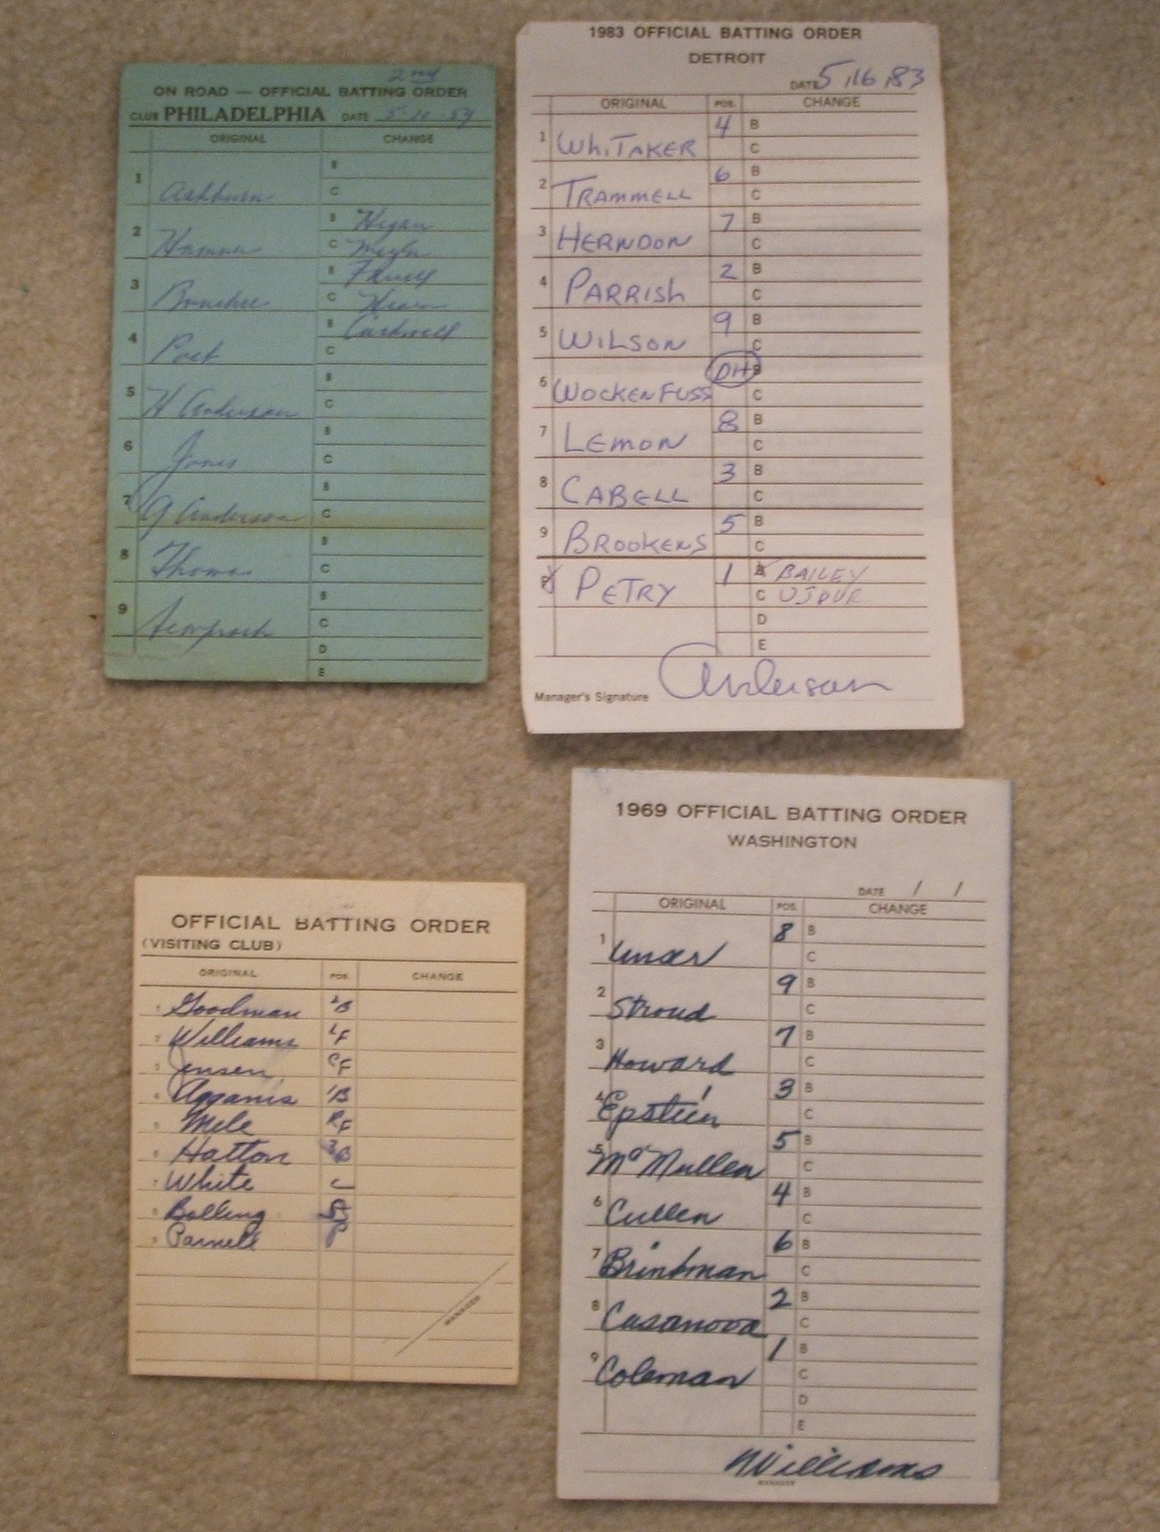 2nd
ON ROAD — OFFICIAL BATTING ORDER
CLUB PHILADELPHIA DATE 5 59
ORIGINAL CHANGE
1 Ashburn B
C
2 Hamner B Hegan
C
3 Bouchee B Farrell
C Hearn
4 Post B Cardwell
C
5 H Anderson B
C
6 Jones B
C
7 G Anderson B
C
8 Thomas B
C
9 Semproch B
C
D
E
1983 OFFICIAL BATTING ORDER
DETROIT
DATE 5/16/83
ORIGINAL POS. CHANGE
1 WHITAKER 4 B
C
2 TRAMMELL 6 B
C
3 HERNDON 7 B
C
4 PARRISH 2 B
C
5 WILSON 9 B
C
6 WOCKENFUSS DH B
C
7 LEMON 8 B
C
8 CABELL 3 B
C
9 BROOKENS 5 B
C
P PETRY 1 B BAILEY
C UJDUR
D
E
Manager's Signature Anderson
OFFICIAL BATTING ORDER
(VISITING CLUB)
ORIGINAL POS. CHANGE
1 Goodman 2B
2 Williams LF
3 Jensen CF
4 Agganis 1B
5 Mele RF
6 Hatton 3B
7 White C
8 Bolling SS
9 Parnell P
MANAGER
1969 OFFICIAL BATTING ORDER
WASHINGTON
DATE / /
ORIGINAL POS. CHANGE
1 Unser 8 B
C
2 Stroud 9 B
C
3 Howard 7 B
C
4 Epstein 3 B
C
5 McMullen 5 B
C
6 Cullen 4 B
C
7 Brinkman 6 B
C
8 Casanova 2 B
C
9 Coleman 1 B
C
D
E
Williams
MANAGER